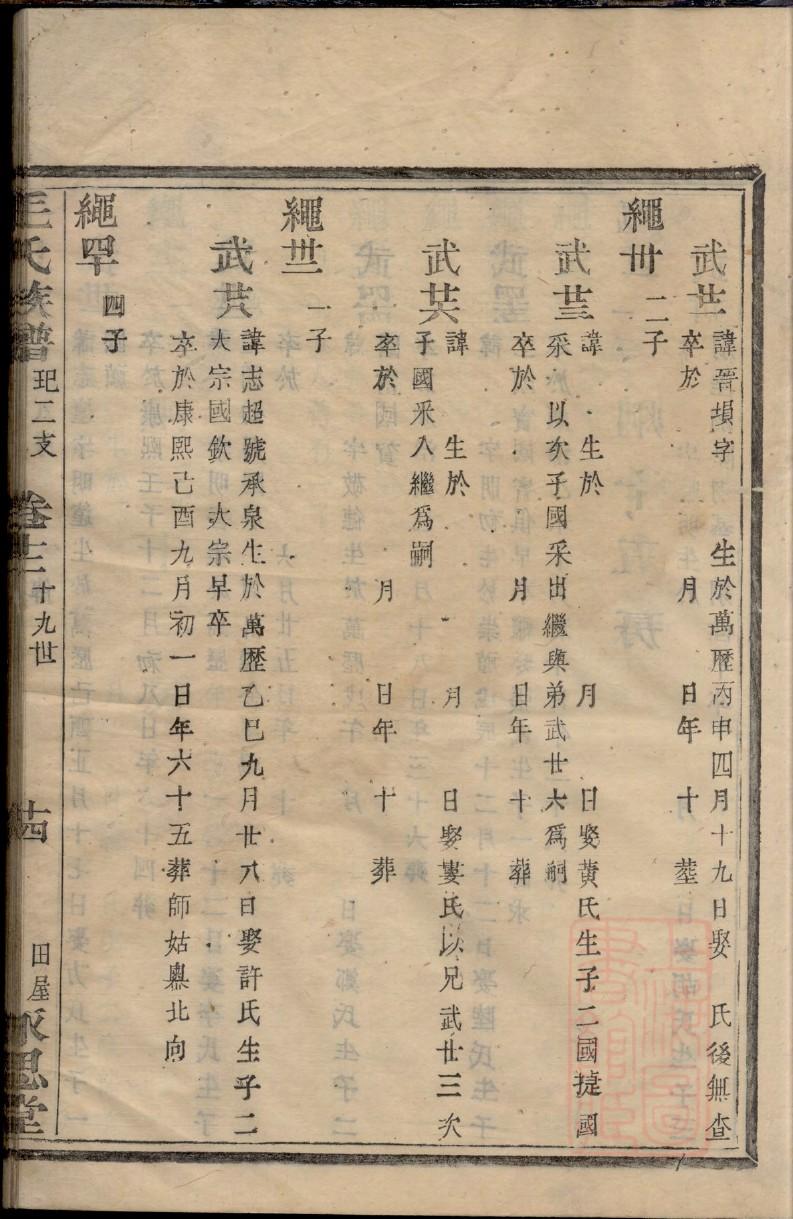 武芏諱晉塤字　生於萬歷丙申四月十九日娶　氏後無查
卒於　月　日年　十　葬
繩卅　二子
武芸諱　生於　月　日娶黃氏生子二國捷國
采　以次子國采出繼與弟武廿六爲嗣
卒於　月　日年　十　葬
武芖諱　生於　月　日娶婁氏以兄武廿三次
子國采入繼爲嗣
卒於　月　日年　十　葬
繩卅三　一子
武芖諱志超號承泉生於萬歷乙巳九月廿八日娶許氏生子二
大宗國欽　大宗早卒
卒於康熙己酉九月初一日年六十五葬師姑嶴北向
繩罕　四子
王氏族譜　玘二支　卷十二　十九世　十四　田屋　承思堂